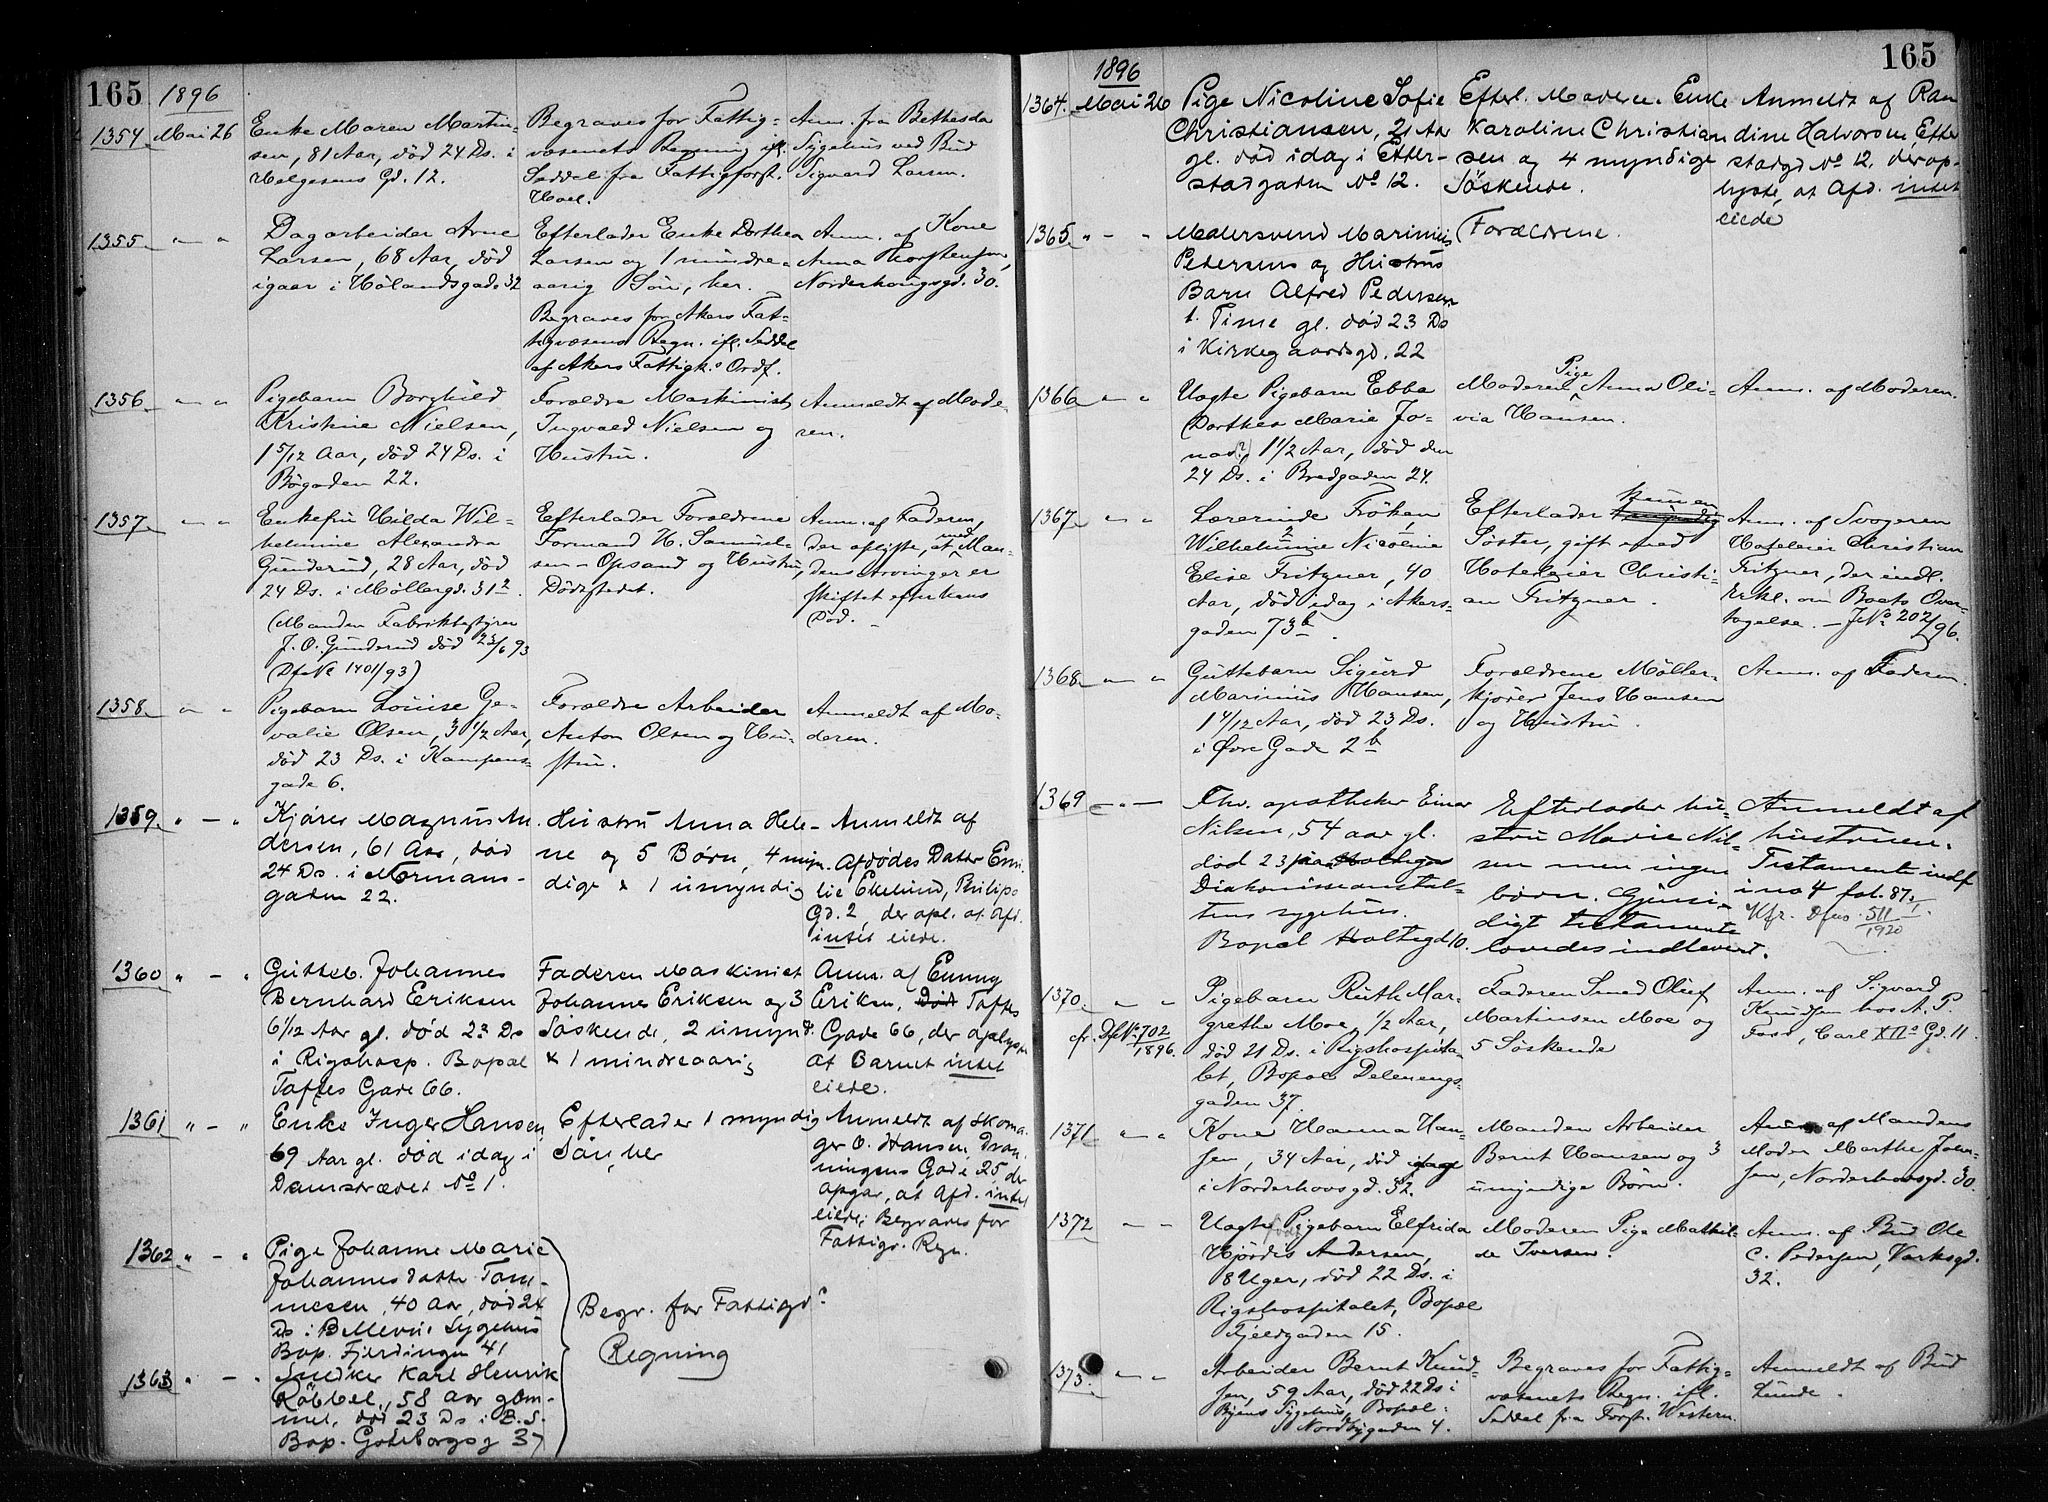 165
1896
1354 Mai 26
Enke Maren Martin-
sen, 81 Aar, död 24 Ds. i
Helgesens Gd. 12.
Begraves for Fattig-
væsenets Regning ifl.
Seddel fra Fattigforst.
Hoel.
Anm. fra Bethesda
Sygehus ved Bud
Sigvard Larsen.
1355 " - "
Dagarbeider Arne
Larsen, 68 Aar, död
igaar i Hölandsgade 32
Efterlader Enke Dorthea
Larsen og 1 mindre-
aarig Sön, her.
Begraves for Akers Fat-
tigvæsens Regn. ifl. Seddel
af Akers Fattigk.s Ordf.
Anm. af Kone
Anna Thorstensen,
Norderhougsgd. 30.
1356 " - "
Pigebarn Borghild
Kristine Nielsen,
1 5/12 Aar, död 24 Ds. i
Bögaden 22.
Forældre Maskinist
Ingvald Nielsen og
Hustru.
Anmeldt af Mode-
ren.
1357 " - "
Enkefru Hilda Wil-
helmine Alexandra
Gunderud, 28 Aar, död
24 Ds. i Möllergd. 31²
(Manden Fabrikbestyrer
J. O. Gunderud död 23/6 93
Df No 1401/93)
Efterlader Forældrene
Formand H. Samuel-
sen - Opsand og Hustru,
Dödsstedet.
Anm. af Faderen,
der oplyste, at med Man-
dens Arvinger er
skiftet efter hans
Död. -
1358 " - "
Pigebarn Louise Ge-
valie Olsen, 3 1/2 Aar,
död 23 Ds. i Kampens-
gade 6.
Forældre Arbeider
Anton Olsen og Hu-
stru.
Anmeldt af Mo-
deren.
1359 " - "
Kjörer Magnus An-
dersen, 61 Aar, död
24 Ds. i Normans-
gaden 22.
Hustru Anna Hele-
ne og 5 Börn, 4 myn-
dige & 1 umyndig
Anmeldt af
Afdödes Datter Emi-
lie Ekelund, Philips
Gd. 2, der opl. at Afd.
intet eiede.
1360 " - "
Gutteb. Johannes
Bernhard Eriksen
6/12 Aar gl. död 23 Ds
i Rigshosp. Bopæl
Toftes Gade 66.
Faderen Maskinist
Johannes Eriksen og 3
Söskende, 2 umynd.
& 1 mindreaarig
Anm. af Emmy
Eriksen, Död Toftes
Gade 66, der oplyste
at Barnet intet
eiede.
1361 " - "
Enke Inger Hansen
69 Aar gl. död idag i
Damstrædet No 1.
Efterlader 1 myndig
Sön, her
Anmeldt af Skoma-
ger O. Hansen, Dron-
ningens Gade 25, der
opgav, at Afd. intet
eiede; Begraves for
Fattigv. Regn.
1362 " - "
Pige Johanne Marie
Johannesdatter Tom-
mesen, 40 Aar, död 24
Ds i Bellevue Sygehus
Bop. Fjerdingen 41
Begr. for Fattigv.s
Regning
1363 " - "
Snedker Karl Henrik
Röbbel, 58 Aar gam-
mel, död 23 Ds i B.S.
Bop. Göteborgsg 37
165
1896
1364. Mai 26
Pige Nicoline Sofie
Christiansen, 21 Aar
gl. död idag i Etter-
stadgaden No 12.
Efterl. Moderen. Enke
Karoline Christian
sen og 4 myndige
Söskende.
Anmeldt af Ran
dine Halvorsen, Etter
stadgd No 12. der op-
lyste, at Afd. intet
eiede
1365. " - "
Malersvend Marinius
Pedersens og Hustrus
Barn Alfred Pedersen
1. Time gl. död 23 Ds
i Kirkegaardsgd. 22
Forældrene.
1366 " - "
Uægte Pigebarn Ebba
Dorthea Marie Jo-
nad(?), 1 1/2 Aar, död den
24 Ds. i Bredgaden 24.
Moderen Pige Anna Oli-
via Hansen.
Anm. af Moderen.
1367 " - "
Lærerinde Fröken
Wilhelmine Nicoline
Elise Fritzner, 40
Aar, död idag i Akers-
gaden 73 b.
Efterlader kun en
Söster, gift med
Hoteleier Christi-
an Fritzner.
Anm. af Svogeren
Hoteleier Christian
Fritzner, der indl.
Erkl. om Boets Over-
tagelse. - J No 202/96.
1368 " - "
Guttebarn Sigurd
Marinius Hansen,
1 4/12 Aar, död 23 Ds.
i Övre Gade 2 b
Forældrene Möller-
kjörer Jens Hansen
og Hustru.
Anm. af Faderen.
1369 - " -
Fhv. apotheker Einar
Nilsen, 54 aar gl.
död 23 paa Holtegns
Diakonisseanstal-
tens sygehus.
Bopæl Holtegd 10.
Efterlader hu-
stru Marie Nil-
sen men ingen
börn. Gjensi-
digt testamente
lovedes indlevert.
Anmeldt af
hustruen.
Testamente indf
i no 4 fol. 87.
Kfr. Dfno. 511/1920
1370. " "
cfr. Df No 702/1896.
Pigebarn Ruth Mar-
grethe Moe, 1/2 Aar,
död 21 Ds. i Rigshospita-
let, Bopæl Delenengs-
gaden 37.
Faderen Smed Oluf
Martinsen Moe og
5 Söskende
Anm. af Sigvard
Knudsen hos A. P.
Foss, Carl XII.s Gd. 11.
1371 " - "
Kone Hanna Han-
sen, 34 Aar, död idag
i Norderhovsgd. 32.
Manden Arbeider
Bernt Hansen og 3
umyndige Börn.
Anm. af Mandens
Moder Marthe Johan-
sen, Norderhovsgd. 30.
1372 - -
Uægte Pigebarn Elfrida
Hjördis Andersen,
8 Uger, död 22 Ds. i
Rigshospitalet, Bopæl
Fjeldgaden 15.
Moderen Pige Mathil-
de Iversen.
Anm. af Bud Ole
C. Pedersen, Værksgd.
32.
1373. " - "
Arbeider Bernt Knud-
sen, 59 Aar, död 22 Ds i
Byens Sygehus, Bopæl:
Nordbygaden 4.
Begraves for Fattig-
væsenets Regn. ifl.
Seddel fra Forst. Western.
Anmeldt af Bud
Lunde.